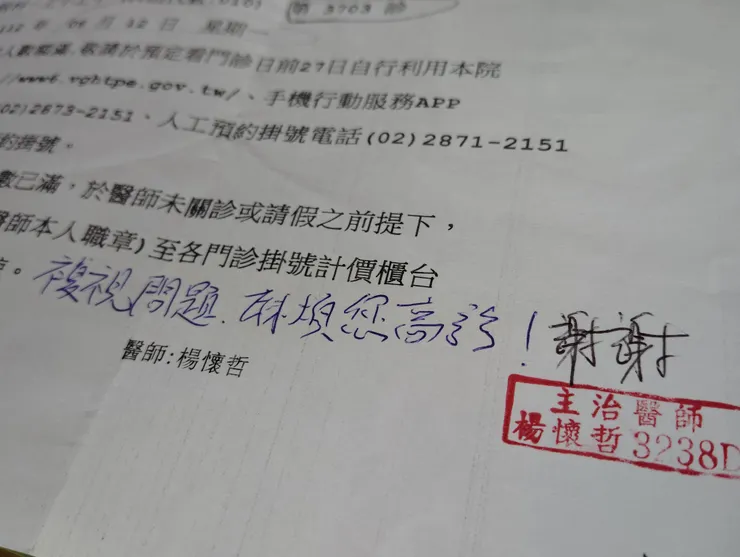 第 3703 診
112 年 06 月 12 日 星期一
人數額滿,敬請於預定看門診日前27日自行利用本院
//www6.vghtpe.gov.tw/、手機行動服務APP
(02)2873-2151、人工預約掛號電話(02)2871-2151
約掛號。
數已滿,於醫師未關診或請假之前提下,
醫師本人職章)至各門診掛號計價櫃台
。複視問題.麻煩您高診!謝謝
醫師:楊懷哲
主治醫師
楊懷哲3238D